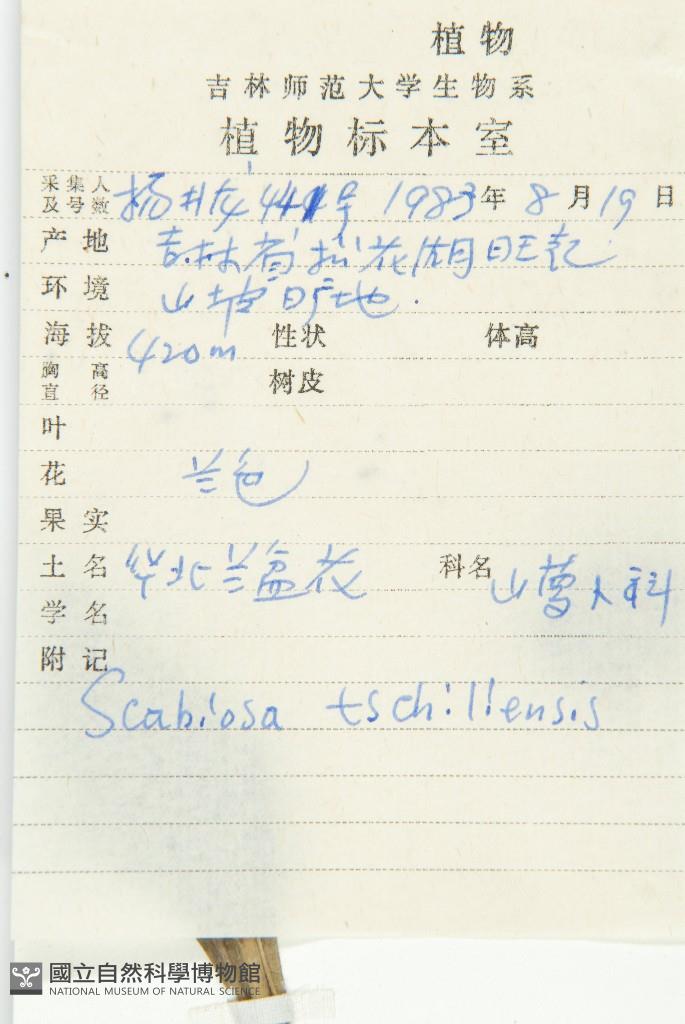 植物
吉林师范大学生物系
植物标本室
采集人及号数 杨井龙 44 号 1983年8月19日
产地 吉林省松花湖
环境 山坡旷地.
海拔 420m 性状 体高
胸高直径 树皮
叶
花 兰色
果实
土名 华北兰盆花 科名 山萝卜科
学名
附记
Scabiosa tschiliensis
國立自然科學博物館
NATIONAL MUSEUM OF NATURAL SCIENCE